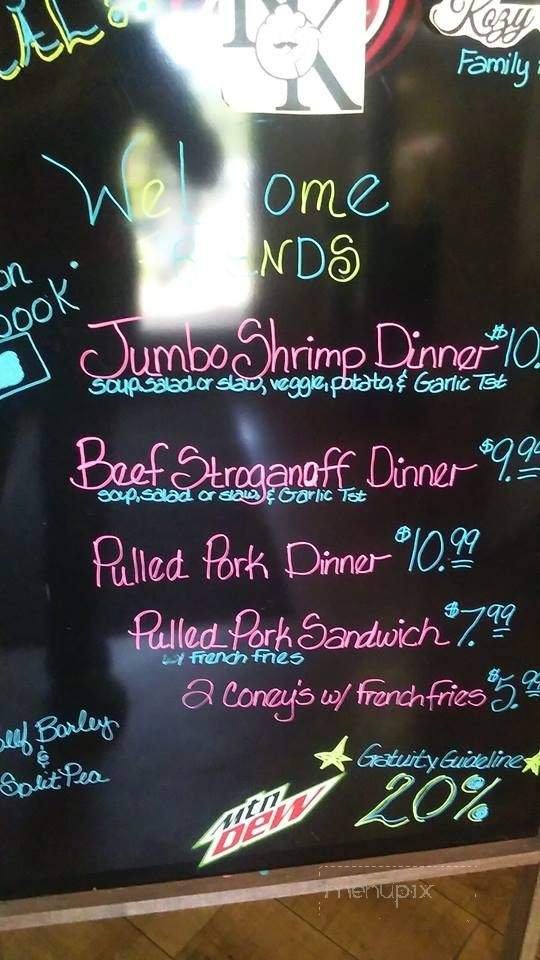 NK
Kozy
Family
Welcome
FRIENDS
on
book
Jumbo Shrimp Dinner $10.
soup, salad or slaw, veggie, potato, & Garlic Tst
Beef Stroganoff Dinner $9.99
soup, salad or slaw, & Garlic Tst
Pulled Pork Dinner $10.99
Pulled Pork Sandwich $7.99
w/ French Fries
2 Coney's w/ french fries $5.99
Beef Barley
&
Split Pea
Gratuity Guideline
20%
mtn
DEW
menupix